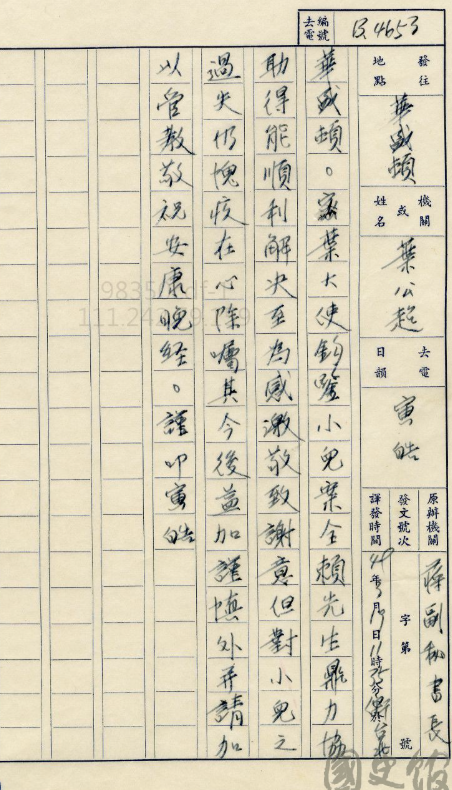 編號
去電
B.4653
發往
地點
華盛頓
機關
或
姓名
葉公超
去電
日韻
寅皓
原辦機關
蔣副秘書長
發文號次
字第 號
譯發時間
年 月 日 11時 分
華盛頓。密葉大使鈞鑒小兒案全賴先生鼎力協
助得能順利解决至為感激敬致謝意但對小兒之
過失仍愧疚在心除囑其今後益加謹慎外并請加
以管教敬祝安康晚経。謹叩寅皓
國史館